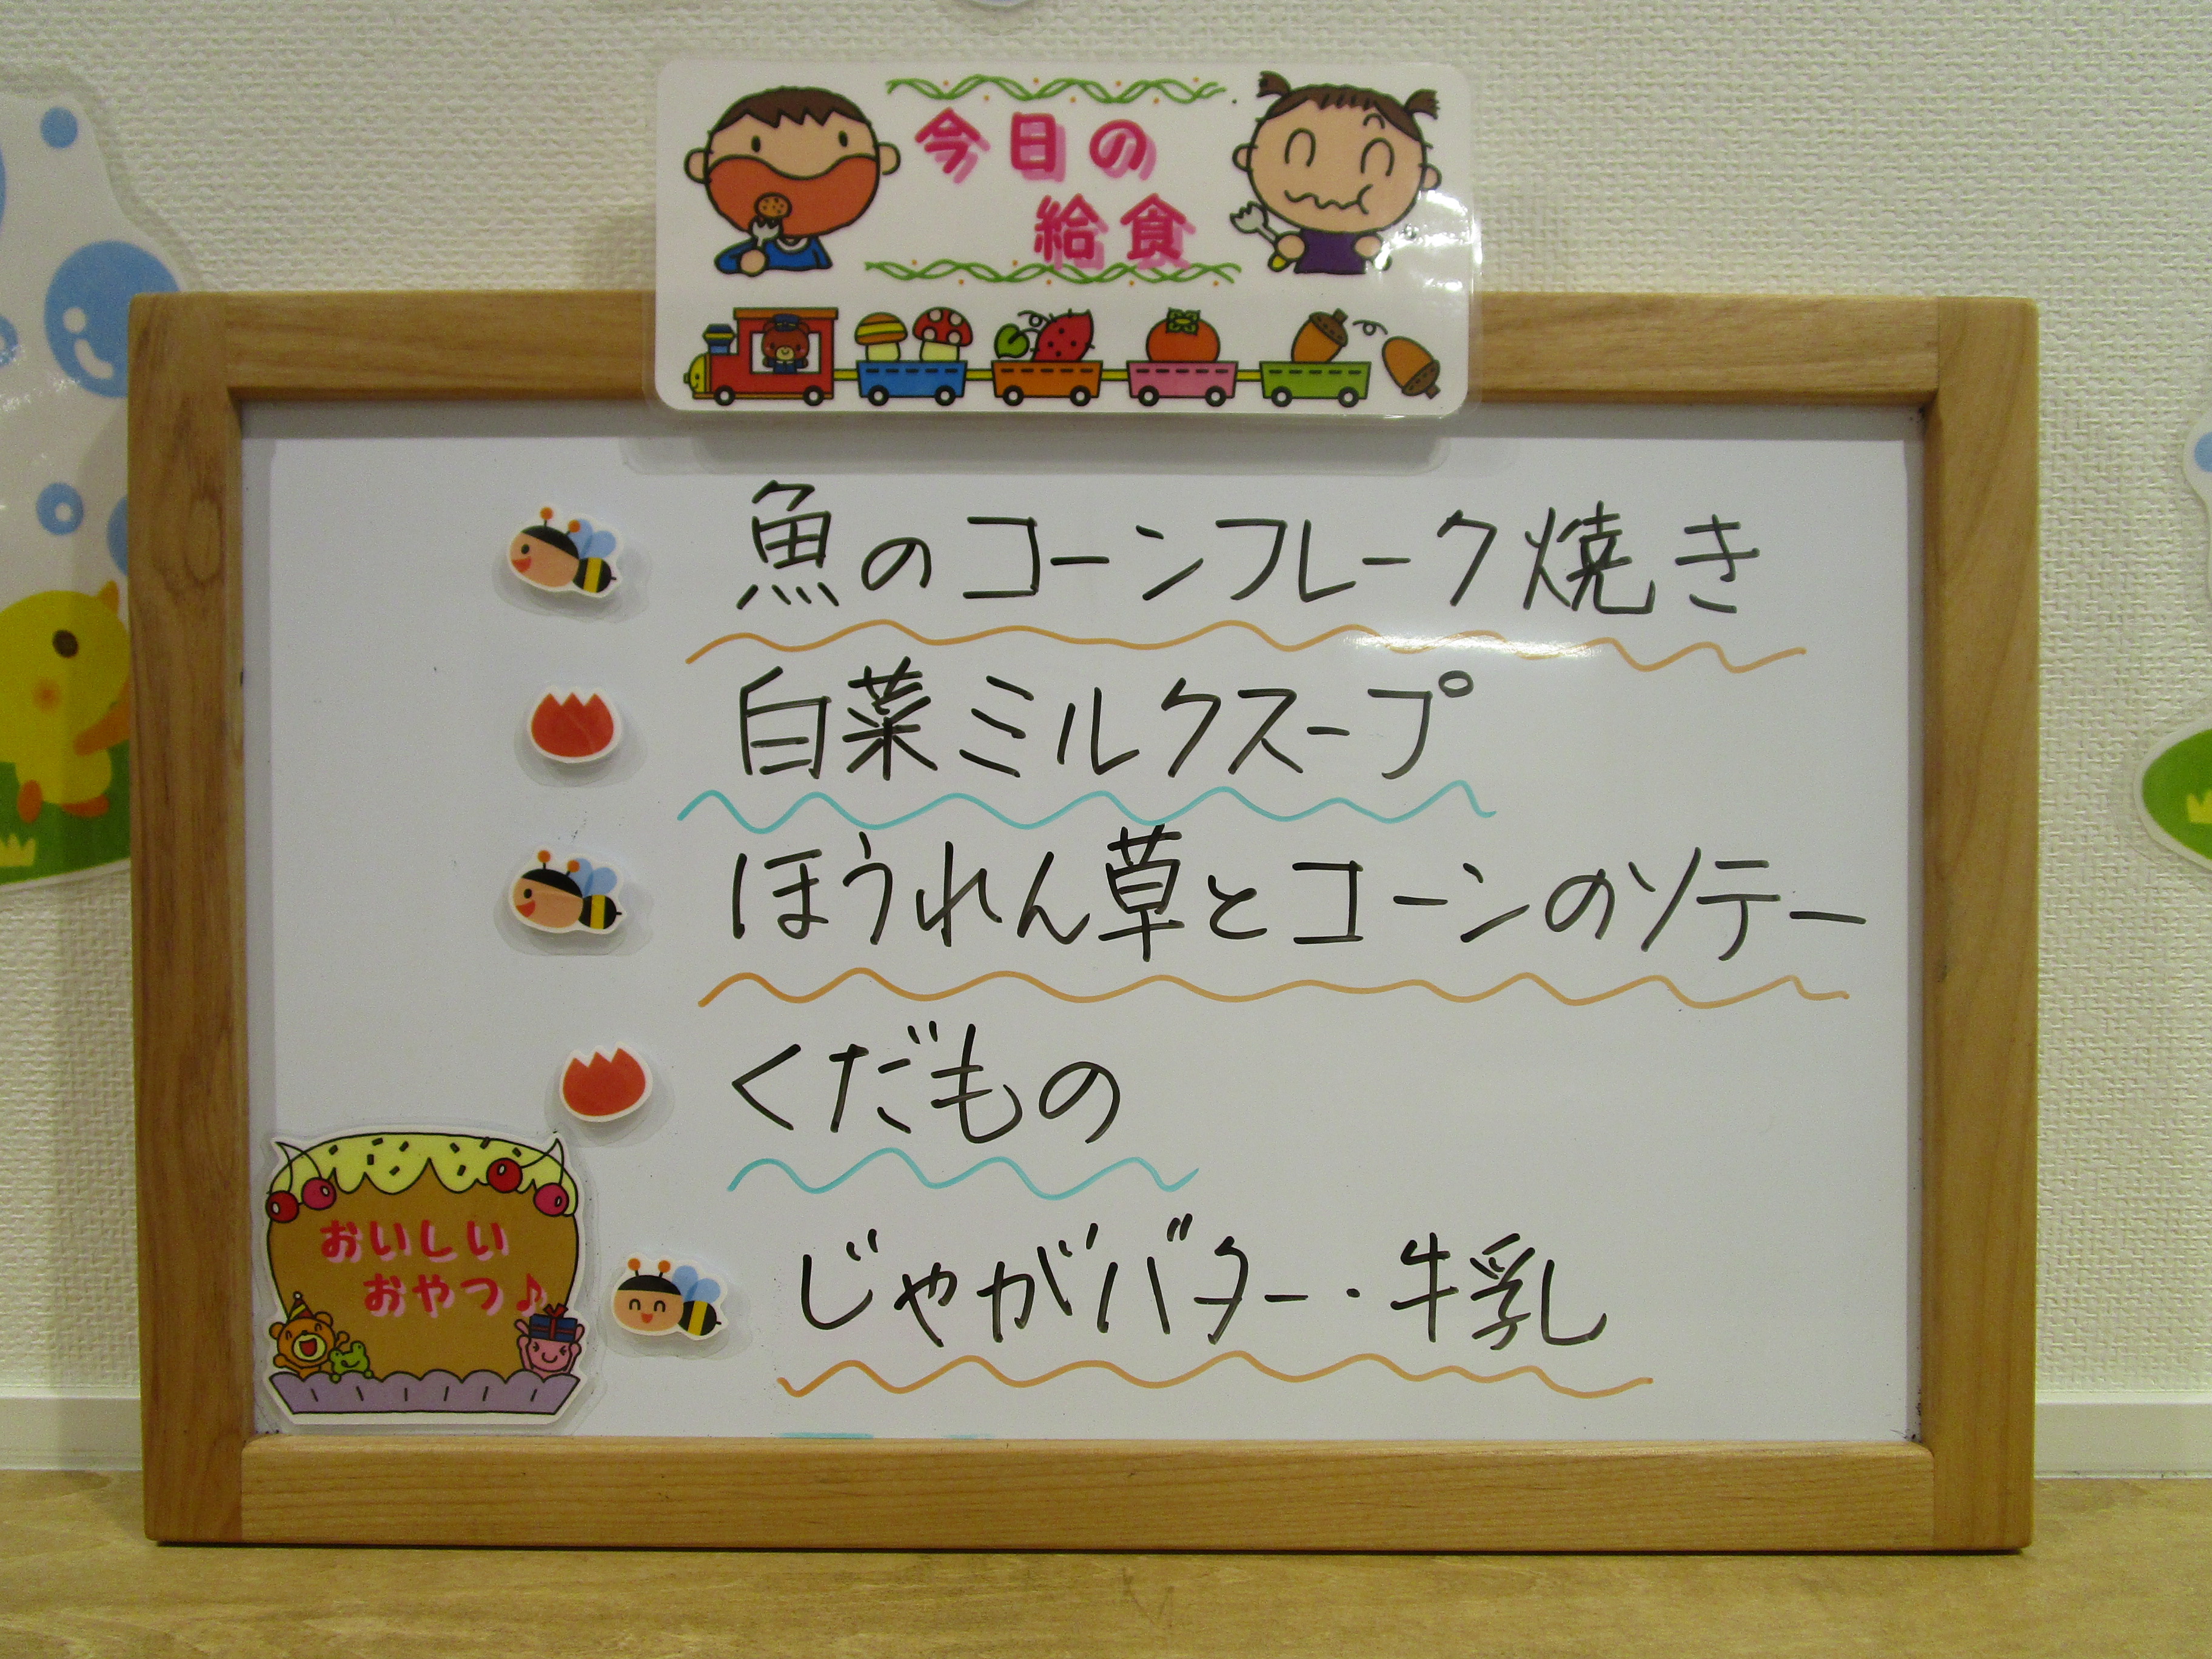 今日の
給食
魚のコーンフレーク焼き
白菜ミルクスープ
ほうれん草とコーンのソテー
くだもの
おいしい
おやつ♪
じゃがバター・牛乳